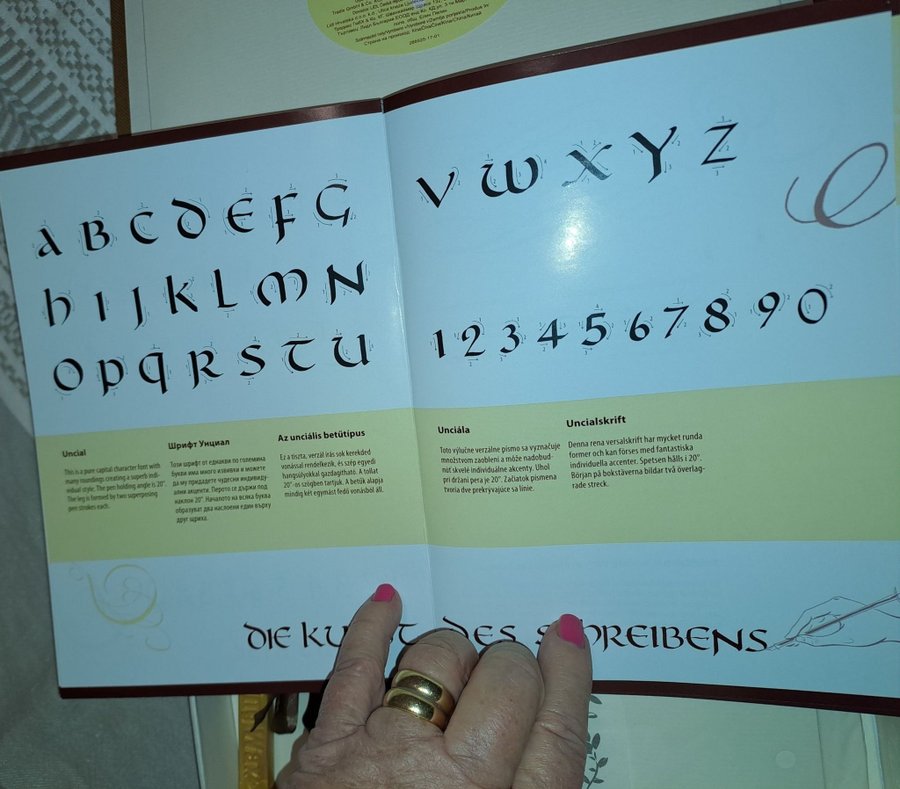 A B C D E F G
H I J K L M N
O P Q R S T U
V W X Y Z
1 2 3 4 5 6 7 8 9 0
Uncial
This is a pure capital character font with
many roundings creating a superb indi-
vidual style. The pen holding angle is 20°.
The leg is formed by two superposing
pen strokes each.
Шрифт Унциал
Този шрифт от еднакви по големина
букви има много извивки и можете
да му придадете чудесни индивиду-
ални акценти. Перото се държи под
наклон 20°. Началото на всяка буква
образуват два наслоени един върху
друг щриха.
Az unciális betűtípus
Ez a tiszta, verzál írás sok kerekded
vonással rendelkezik, és szép egyedi
hangsúlyokkal gazdagítható. A tollat
20°-os szögben tartjuk. A betűk alapja
mindig két egymást fedő vonásból áll.
Unciála
Toto výlučne verzálne písmo sa vyznačuje
množstvom zaoblení a môže nadobud-
núť skvelé individuálne akcenty. Uhol
pri držaní pera je 20°. Začiatok písmena
tvoria dve prekrývajúce sa línie.
Uncialskrift
Denna rena versalskrift har mycket runda
former och kan förses med fantastiska
individuella accenter. Spetsen hålls i 20°.
Början på bokstäverna bildar två överlag-
rade streck.
DIE DES